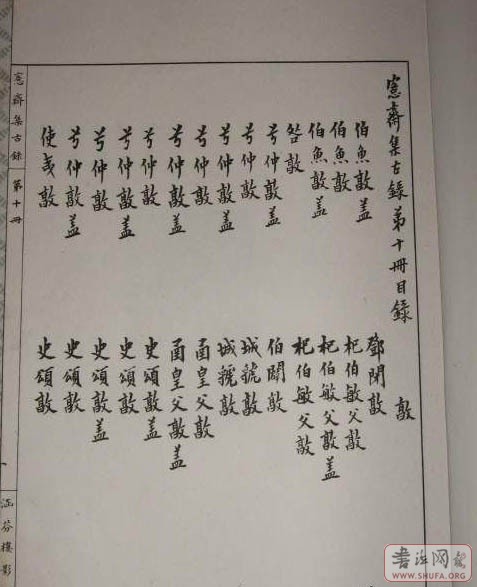 愙齋集古錄第十冊目錄
敦
伯魚敦蓋
伯魚敦
伯魚敦蓋
咎敦
兮仲敦蓋
兮仲敦
兮仲敦蓋
兮仲敦
兮仲敦蓋
兮仲敦
兮仲敦蓋
兮仲敦
兮仲敦蓋
使夷敦
鄧閉敦
杞伯敏父敦
杞伯敏父敦蓋
杞伯敏父敦
伯闢敦
城虢敦
城虢敦
圅皇父敦
圅皇父敦蓋
史頌敦蓋
史頌敦
史頌敦蓋
史頌敦
史頌敦
愙齋集古錄 第十冊
涵芬樓影
書法网
WWW.SHUFA.ORG